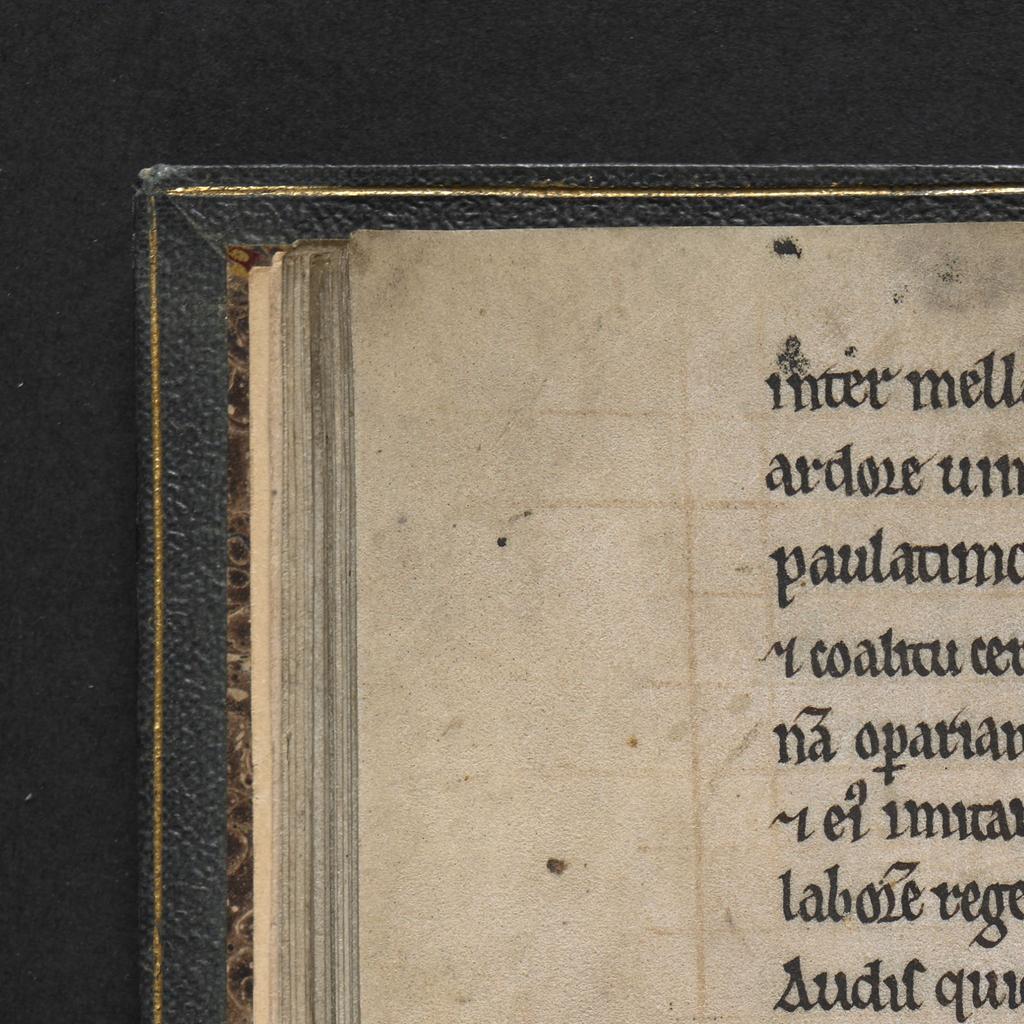 inter mell
ardore um
paulatimq
⁊ coalitu cer
nā oꝑarian
⁊ eiꝰ imitar
laborē rege
Audiſ qui